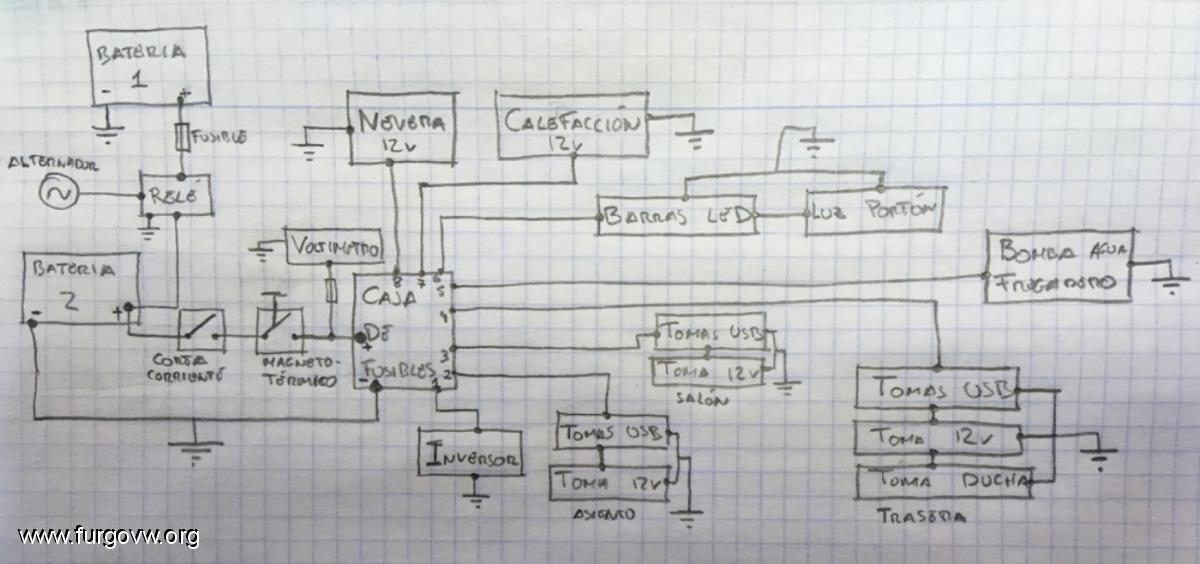 BATERIA
1
-
+
FUSIBLE
ALTERNADOR
RELÉ
NEVERA
12V
CALEFACCIÓN
12V
BARRAS LED
LUZ PORTÓN
BOMBA AGUA
FREGADERO
VOLTIMETRO
BATERIA
2
-
+
CORTA
CORRIENTE
MAGNETO-
TÉRMICO
CAJA
DE
FUSIBLES
+
-
8
7
6
5
4
3
2
1
TOMAS USB
TOMA 12V
SALÓN
INVERSOR
TOMAS USB
TOMA 12V
ASIENTO
TOMAS USB
TOMA 12V
TOMA DUCHA
TRASERA
www.furgovw.org